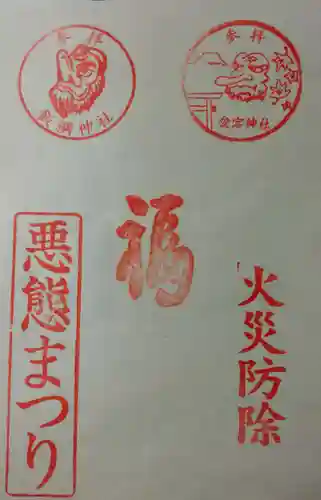 参拝
愛宕神社
参拝
飯綱神社
火災防除
福
悪態まつり